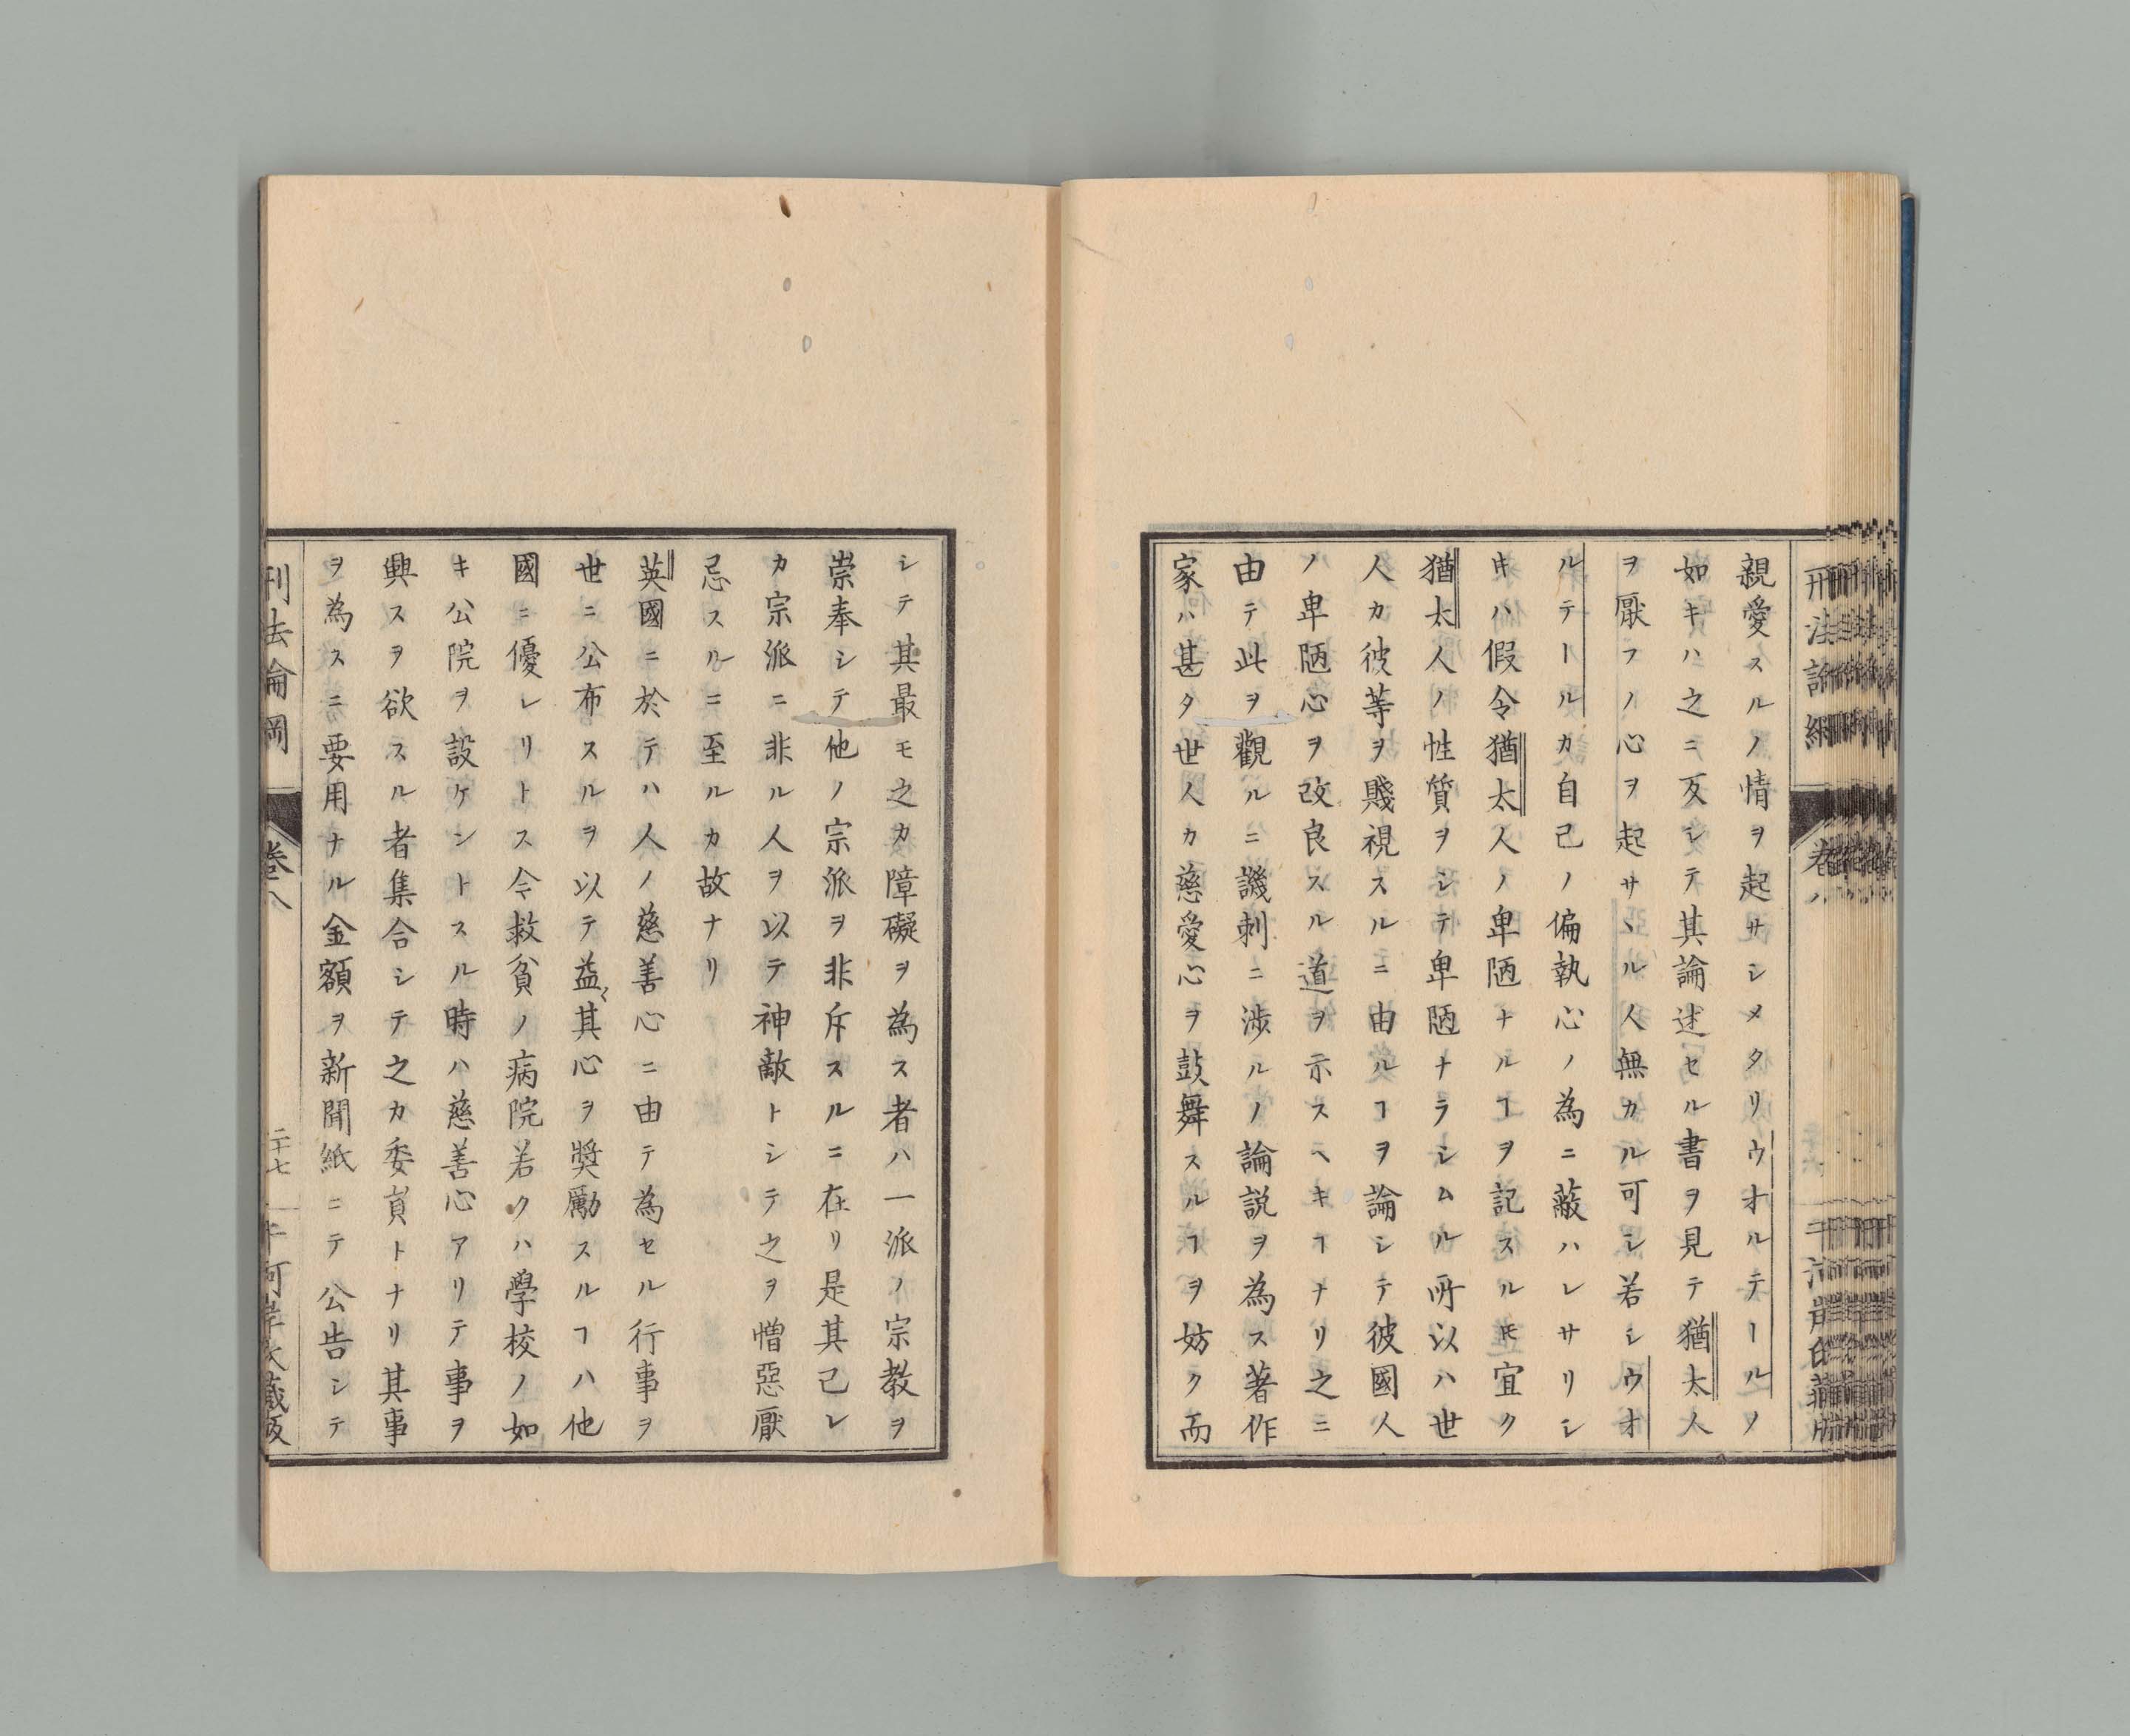 親愛スルノ情ヲ起サシメタリウオルテールノ
如キハ之ニ反シテ其論述セル書ヲ見テ猶太人
ヲ厭フノ心ヲ起サヽル人無カル可シ若シウオ
ルテールカ自己ノ偏執心ノ為ニ蔽ハレサリシ
キハ假令猶太人ノ卑陋ナルヿヲ記スルㇳモ宜ク
猶太人ノ性質ヲシテ卑陋ナラシムル所以ハ世
人カ彼等ヲ賤視スルニ由ルヿヲ論シテ彼國人
ノ卑陋心ヲ改良スル道ヲ示スヘキヿナリ之ニ
由テ此ヲ觀ルニ譏刺ニ渉ルノ論説ヲ為ス著作
家ハ甚タ世人カ慈愛心ヲ鼓舞スルヿヲ妨ク而
シテ其最モ之カ障礙ヲ為ス者ハ一派ノ宗教ヲ
崇奉シテ他ノ宗派ヲ非斥スルニ在リ是其己レ
カ宗派ニ非ル人ヲ以テ神敵トシテ之ヲ憎惡厭
忌スルニ至ルカ故ナリ
英國ニ於テハ人ノ慈善心ニ由テ為セル行事ヲ
世ニ公布スルヲ以テ益〻其心ヲ奬勵スルヿハ他
國ニ優レリトス今救貧ノ病院若クハ學校ノ如
キ公院ヲ設ケントスル時ハ慈善心アリテ事ヲ
興スヲ欲スル者集合シテ之カ委員トナリ其事
ヲ為スニ要用ナル金額ヲ新聞紙ニテ公告シテ
刑法論綱
卷八
二十七